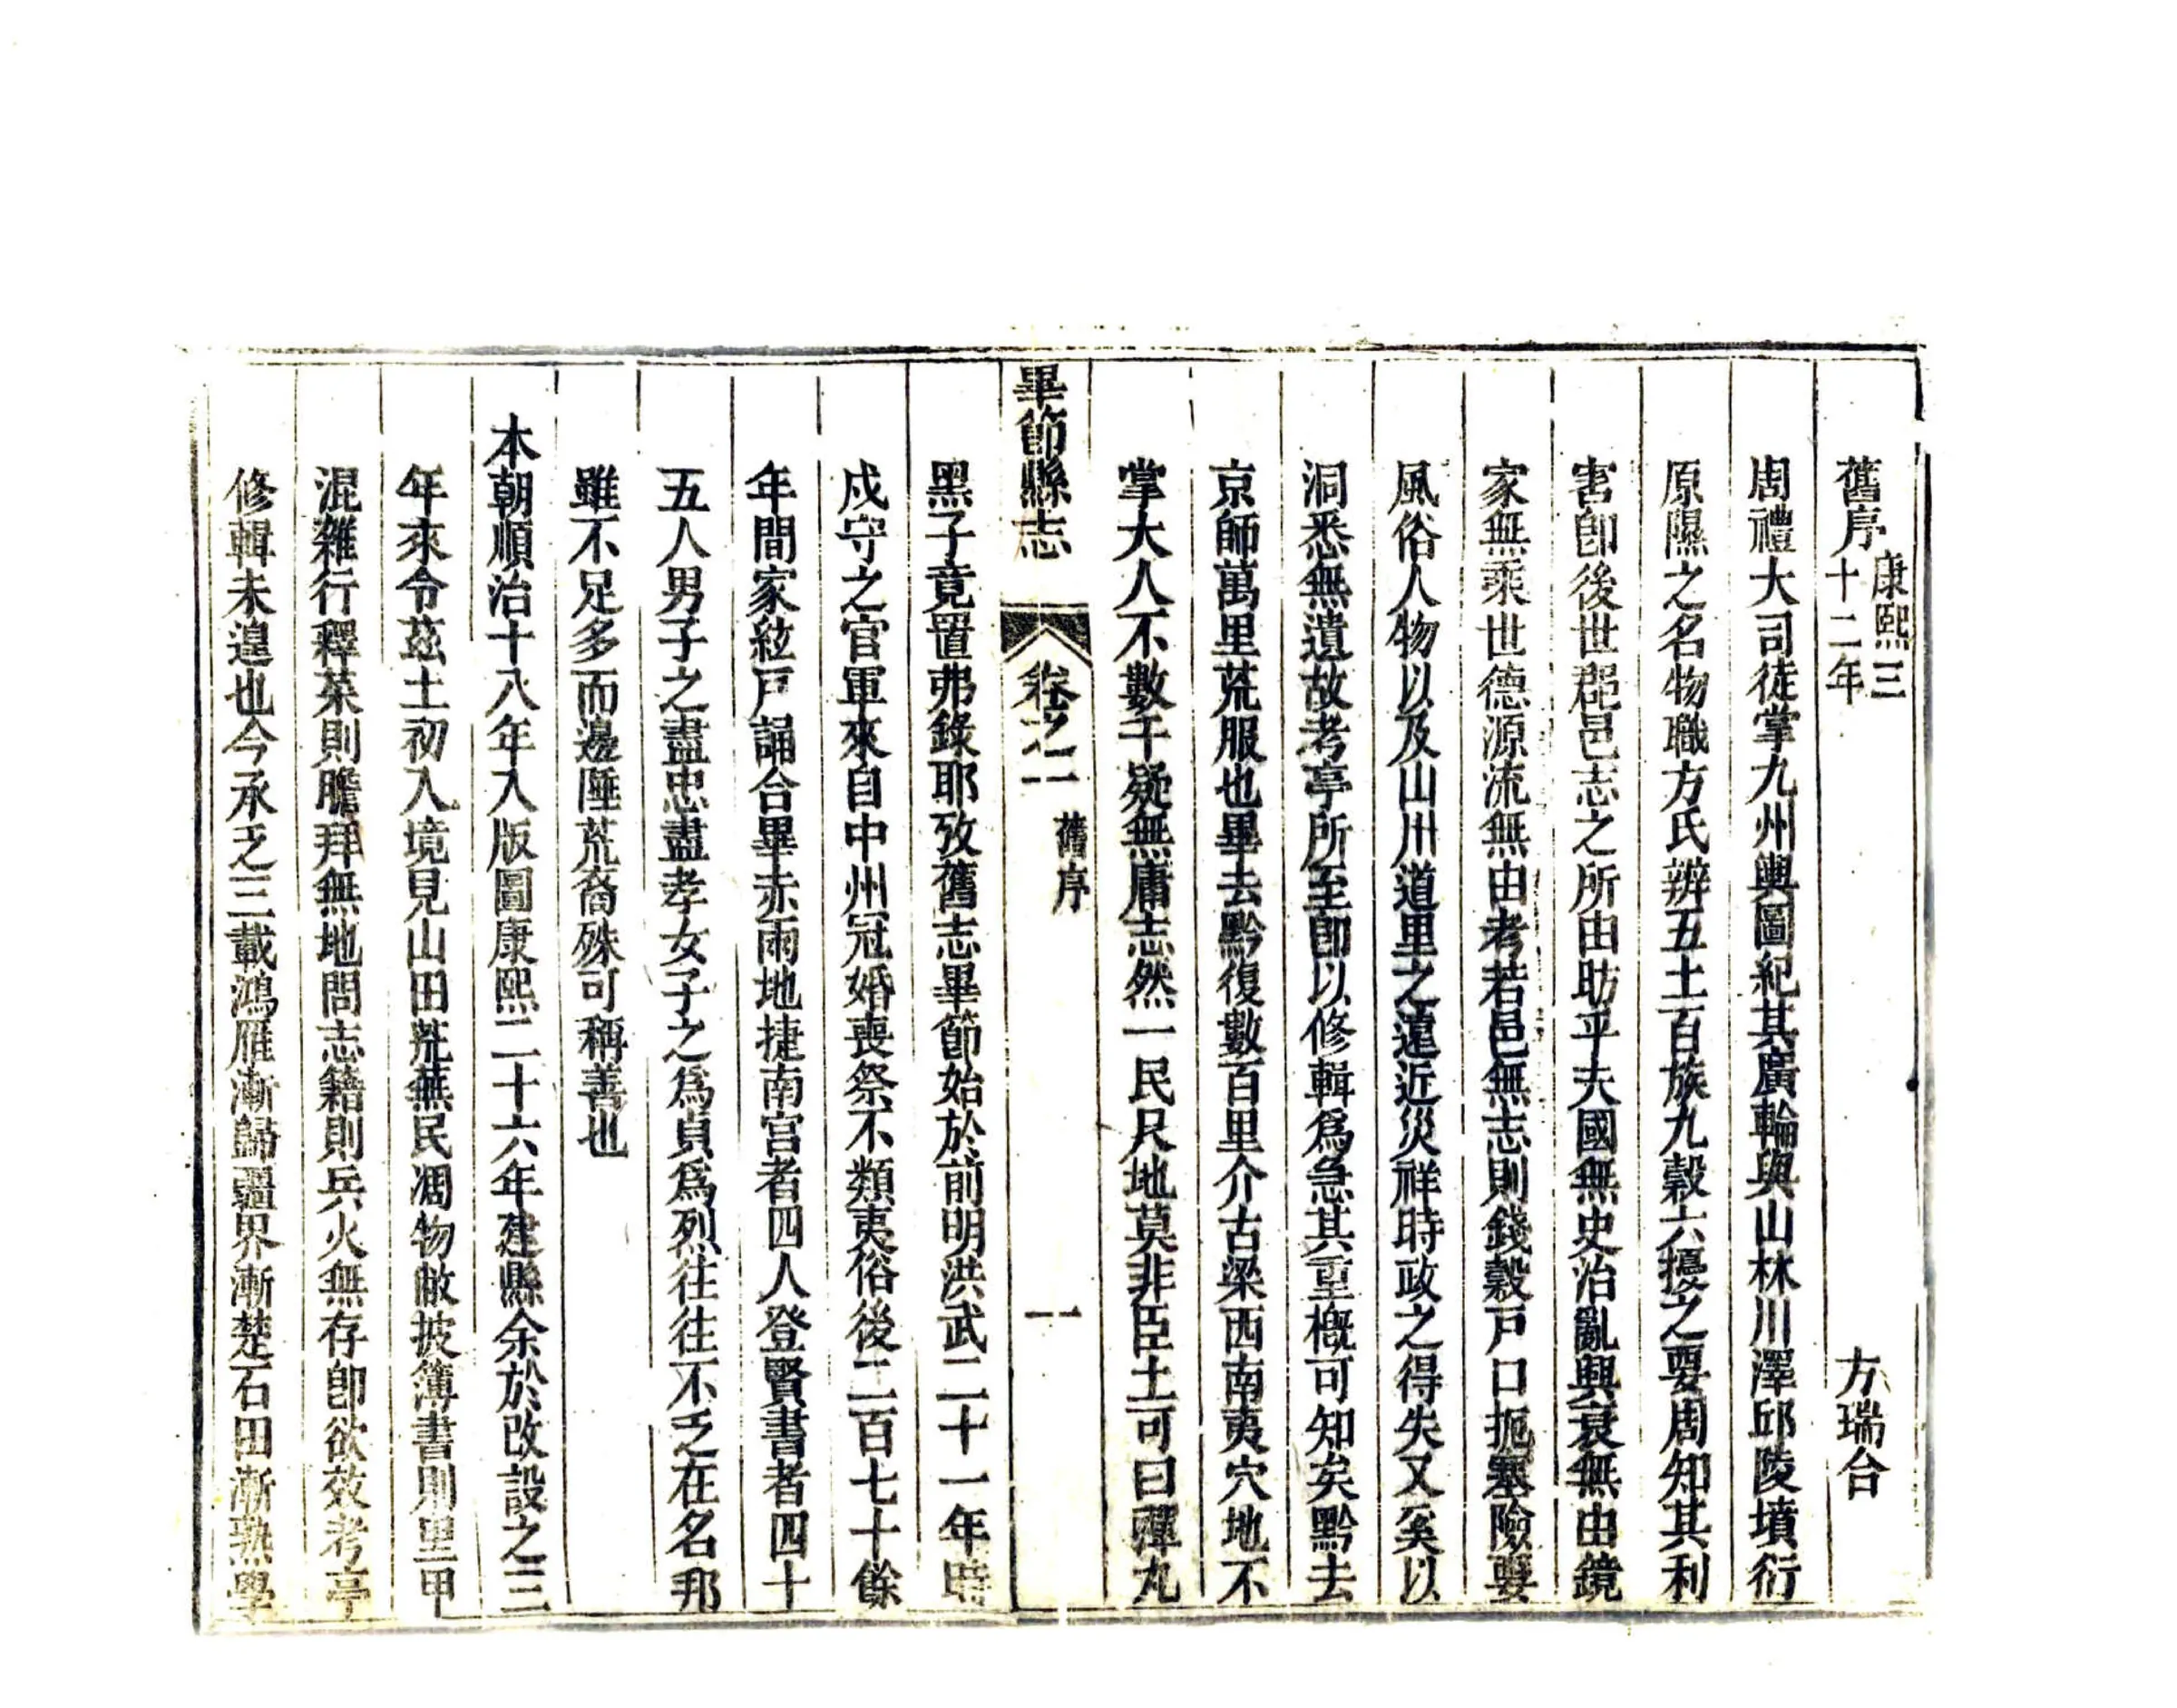 舊序康熙三十二年 方瑞合
周禮大司徒掌九州輿圖紀其廣輪與山林川澤邱陵墳衍
原隰之名物職方氏辨五土百族九穀六擾之要周知其利
害卽後世郡邑志之所由昉乎夫國無史治亂興衰無由鏡
家無乘世德源流無由考若邑無志則錢穀戸口扼塞險要
風俗人物以及山川道里之遠近災祥時政之得失又奚以
洞悉無遺故考亭所至卽以修輯爲急其重槪可知矣黔去
京師萬里荒服也畢去黔復數百里介古梁西南夷穴地不
掌大人不數千疑無庸志然一民尺地莫非臣土可曰彈丸
畢節縣志 卷之一 舊序 一
黑子竟置弗錄耶攷舊志畢節始於前明洪武二十一年時
戍守之官軍來自中州冠婚喪祭不類夷俗後二百七十餘
年間家絃戸誦合畢赤兩地捷南宮者四人登賢書者四十
五人男子之盡忠盡孝女子之爲貞爲烈往往不乏在名邦
雖不足多而邊陲荒裔殊可稱善也
本朝順治十八年入版圖康熙二十六年建縣余於改設之三
年來令茲土初入境見山田荒蕪民凋物敝披簿書則里甲
混雜行釋菜則瞻拜無地問志籍則兵火無存卽欲效考亭
修輯未遑也今承乏三載鴻雁漸歸疆界漸楚石田漸熟學